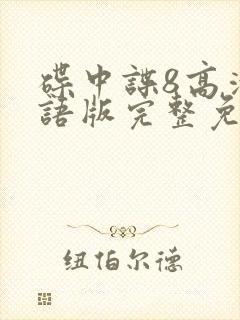 碟中諜8高清
語版完整免
纽伯尔德